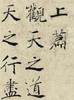 上篇
觀天之道
天之行盡